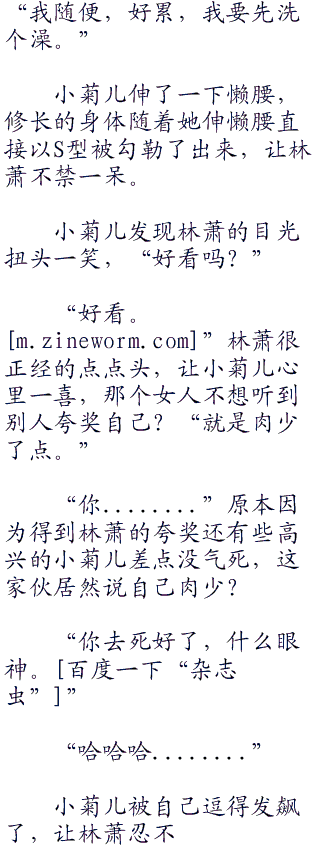 “我随便，好累，我要先洗
个澡。”
小菊儿伸了一下懒腰，
修长的身体随着她伸懒腰直
接以S型被勾勒了出来，让林
萧不禁一呆。
小菊儿发现林萧的目光
扭头一笑，“好看吗？”
“好看。
[m.zineworm.com]”林萧很
正经的点点头，让小菊儿心
里一喜，那个女人不想听到
别人夸奖自己？“就是肉少
了点。”
“你........”原本因
为得到林萧的夸奖还有些高
兴的小菊儿差点没气死，这
家伙居然说自己肉少？
“你去死好了，什么眼
神。[百度一下“杂志
虫”]”
“哈哈哈........”
小菊儿被自己逗得发飙
了，让林萧忍不